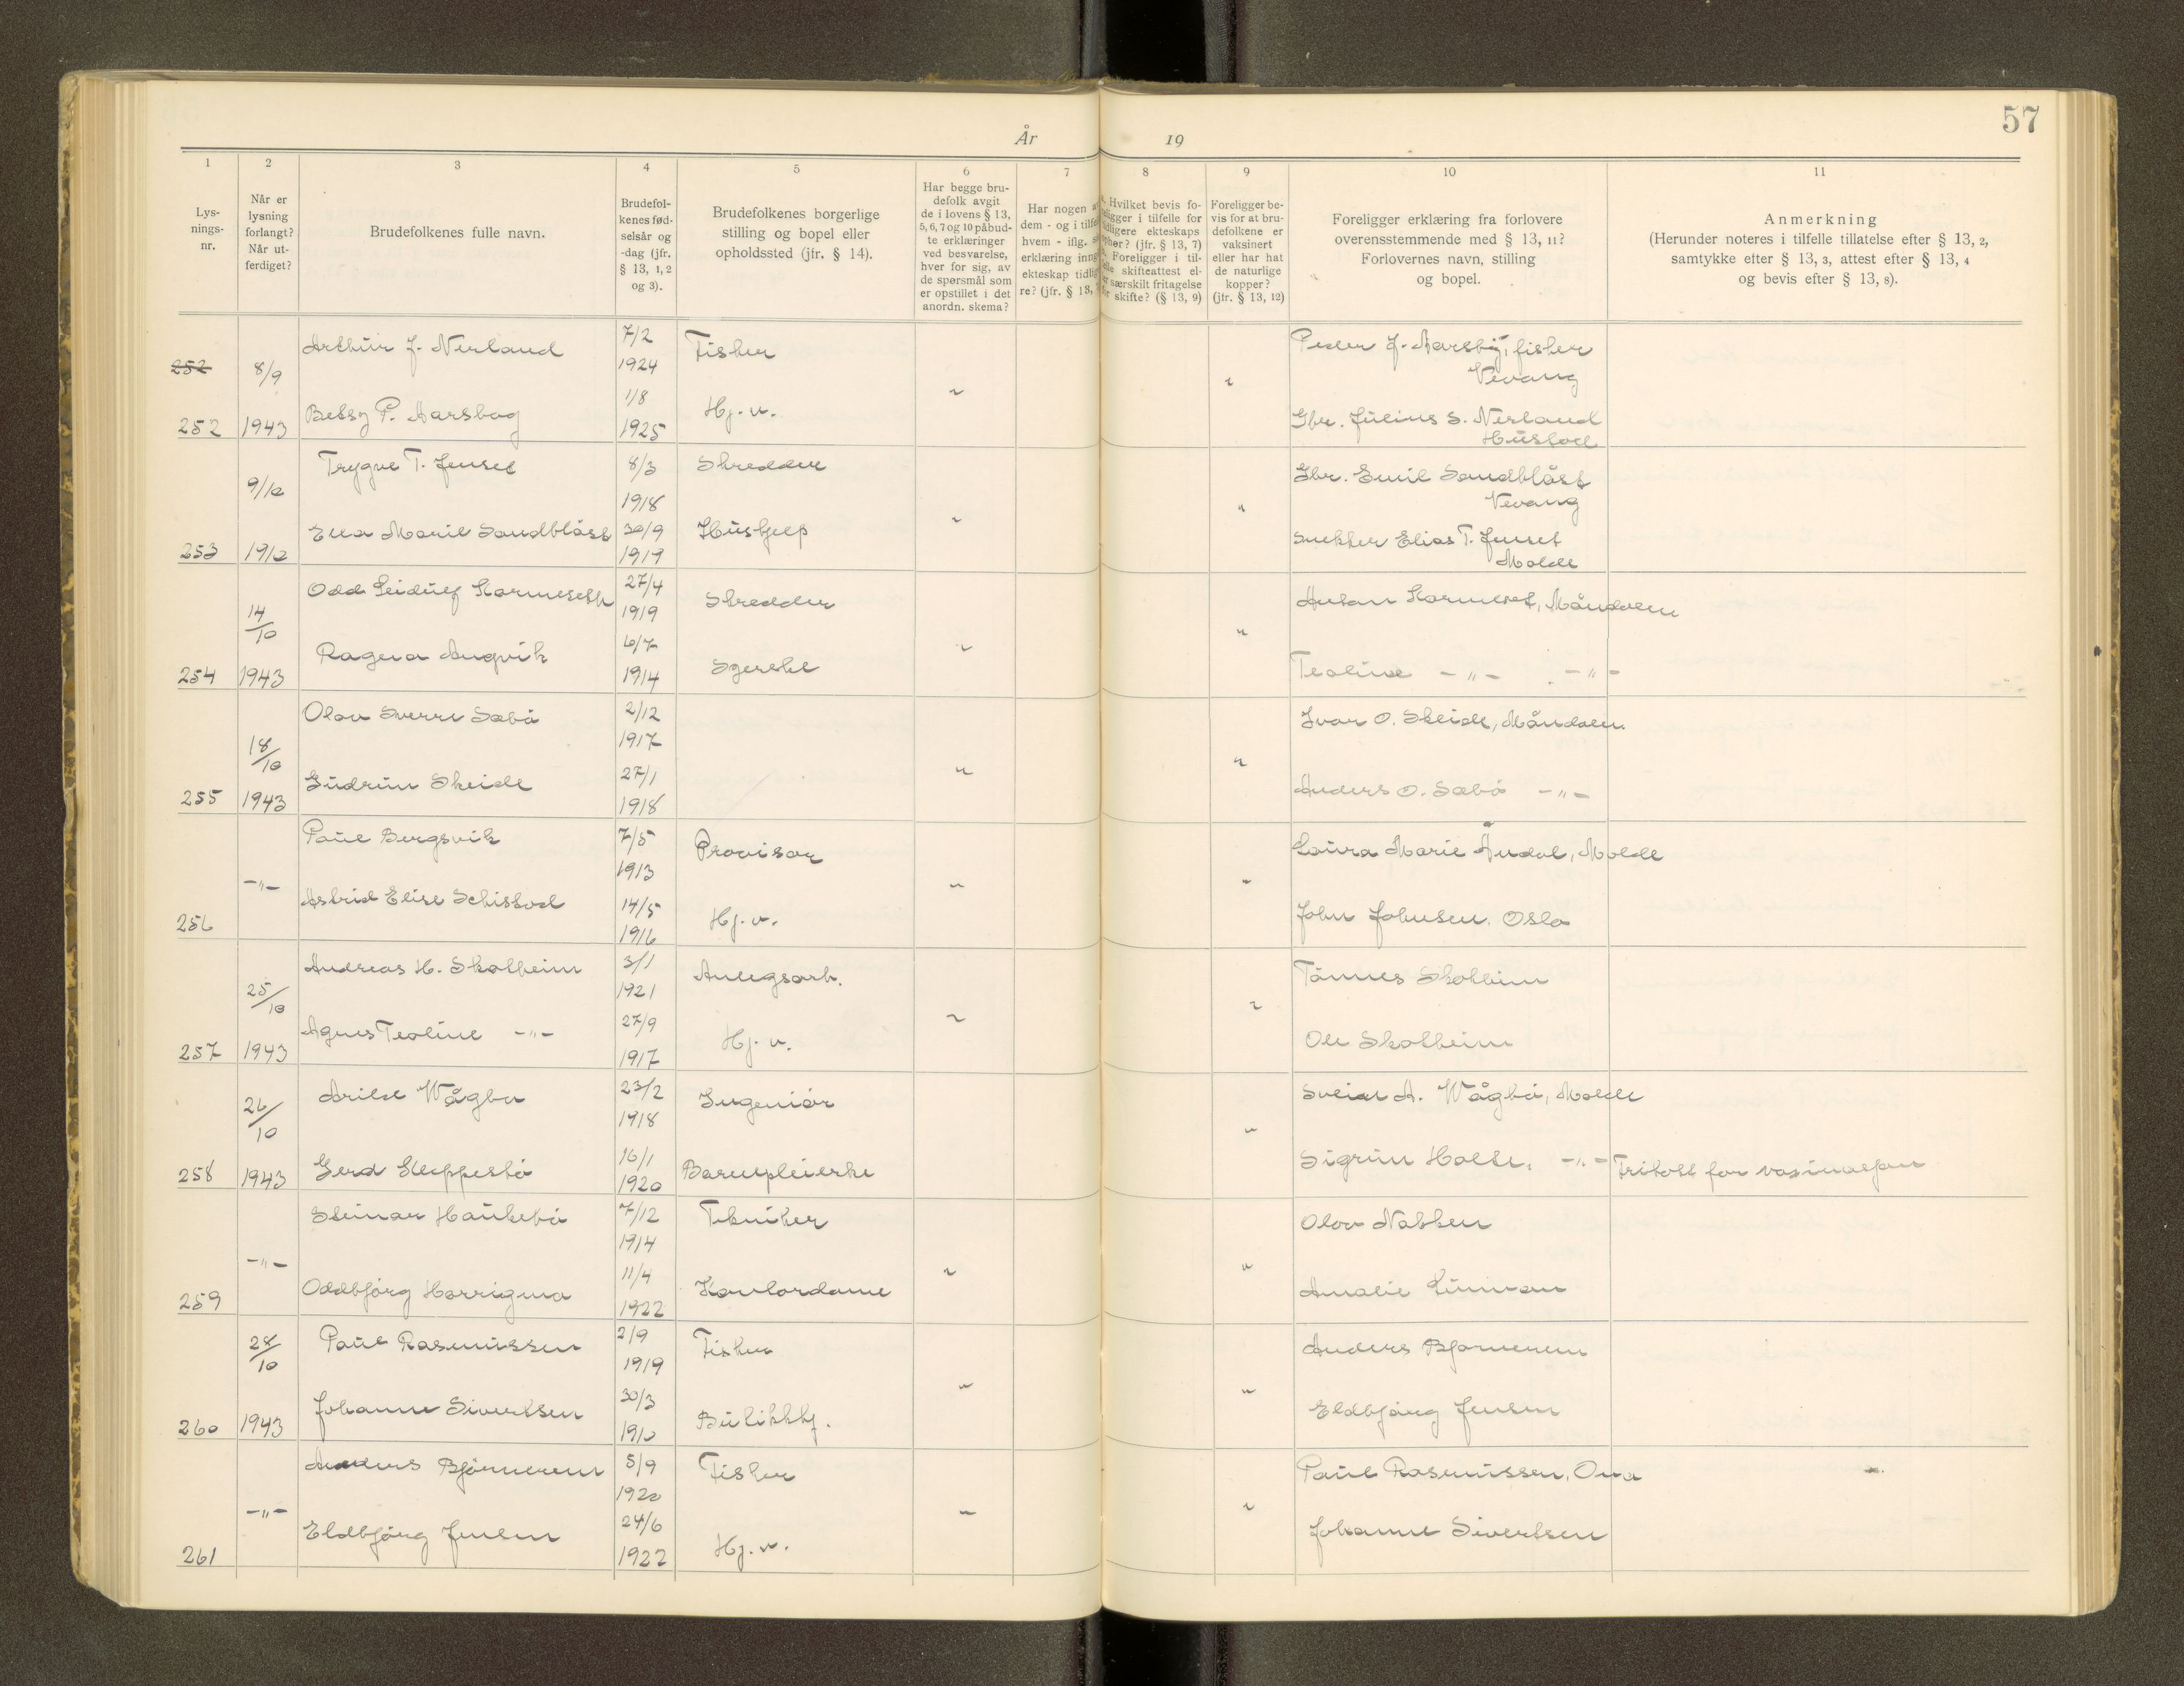 57
År 19
1 2 3 4 5 6 7 8 9 10 11
Lys-
nings-
nr.
Når er
lysning
forlangt?
Når ut-
ferdiget?
Brudefolkenes fulle navn.
Brudefol-
kenes fød-
selsår og
-dag (jfr.
§ 13, 1, 2
og 3).
Brudefolkenes borgerlige
stilling og bopel eller
opholdssted (jfr. § 14).
Har begge bru-
defolk avgit
de i lovens § 13,
5, 6, 7 og 10 påbud-
te erklæringer
ved besvarelse,
hver for sig, av
de spørsmål som
er opstillet i det
anordn. skema?
Har nogen
dem - og i
hvem - iflg.
erklæring
ekteskap
re? (jfr. § 13,
Hvilket bevis fo-
religger i tilfelle for
tidligere ekteskaps
ophør? (jfr. § 13, 7)
Foreligger i til-
felle skifteattest el-
særskilt fritagelse
for skifte? (§ 13, 9)
Foreligger be-
vis for at bru-
defolkene er
vaksinert
eller har hat
de naturlige
kopper?
(jfr. § 13, 12)
Foreligger erklæring fra forlovere
overensstemmende med § 13, 11?
Forlovernes navn, stilling
og bopel.
Anmerkning
(Herunder noteres i tilfelle tillatelse efter § 13, 2,
samtykke efter § 13, 3, attest efter § 13, 4
og bevis efter § 13, 8).
252 8/9 Arthur J. Nerland 7/2 1924 Fisker Peder J. Aarsbog, fisker
Vevang
252 1943 Betsy P. Aarsbog 1/8 1925 Hj. v. " " Gbr. Julius S. Nerland
Hustad
9/10 Trygve T. Jenset 8/3 1918 Skredder Gbr. Emil Sandblåst
Vevang
253 Ella Marie Sandblåst 30/9 1919 Hushjelp " " snekker Elias T. Jenset
Molde
14/10 Odd Leidulf Kormeseth 27/4 1919 Skredder Anton Kormeset, Måndalen
254 1943 Ragna Angvik 6/7 1914 Syerske " " Teoline -"- -"-
18/10 Olav Sverre Sæbö 2/12 1917 Ivar O. Skeide, Måndalen.
255 1943 Gudrun Skeide 27/1 1918 " " Anders O. Sæbö -"-
-"- Paul Bergsvik 7/5 1913 Provisor Laura Marie Åndal, Molde
256 Astrid Elise 14/5 1916 Hj. v. " " John Johnsen, Oslo
25/10 Andreas H. Skolheim 3/1 1921 Anlegsarb. Tönnes Skolheim
257 1943 Agnes Teoline -"- 27/9 1917 Hj. v. " " Ole Skolheim
26/10 Arild Wågbø 23/2 1918 Ingeniör Sveinar A. Wågbö, Molde
258 1943 Gerd Kleppestö 16/1 1920 Barnepleierske " Sigrun Holte, -"- Fritatt for vaksinasjon
-"- Steinar Haukebö 7/12 1914 Tekniker Olav Nakken
259 Oddbjörg Horrigmo 11/4 1922 Kontordame " " Amalie
28/10 Paul Rasmussen 2/9 1919 Fisker Anders Bjørnerem
260 1943 Johanne Sivertsen 30/3 1910 " " Eldbjörg Jensen
-"- Anders Björnerem 5/9 1920 Fisker Paul Rasmussen, Ona
261 Eldbjörg Jensen 24/6 1922 Hj. v. " " Johanne Sivertsen